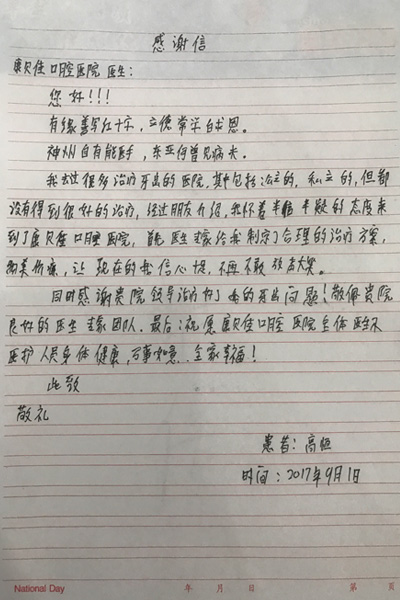 感谢信
贝佳口腔医院医生:
您好!!!
有缘善写红十字,立德常采白求恩。
神州自有能手,东亚何曾见病夫。
我去过很多治疗牙齿的医院,其中包括公立的,私立的,但都
没有得到很好的治疗,经过朋友介绍,我怀着半信半疑的态度来
到了贝佳口腔医院,首先医生给我制定了合理的治疗方案,
让现在的我信心,不再不敢放声大笑。
同时感谢贵院领导治好了我的牙齿问题!敬佩贵院
良好的医生团队、最后:祝愿贝佳口腔医院全体医生
医护人员身体健康,万事如意、全家幸福!
此致
敬礼
患者:高恒
时间:2017年9月1日
National Day 年 月 日 第 页